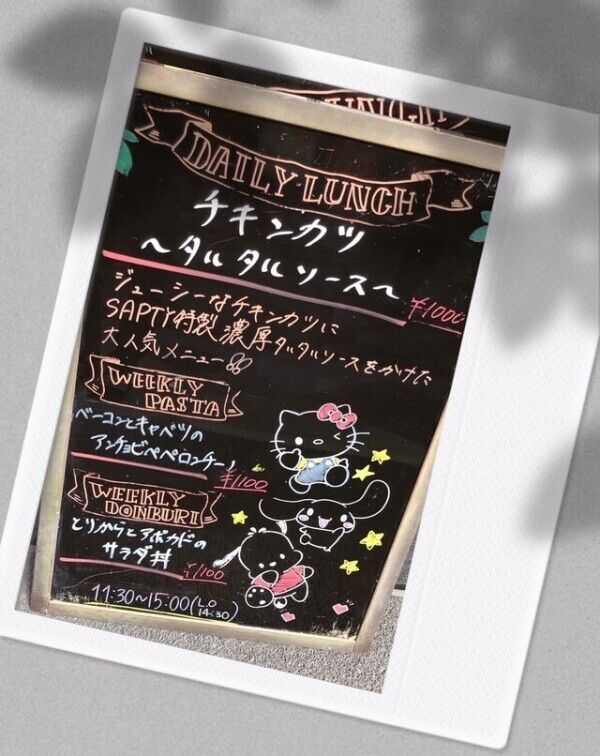 DAILY LUNCH
チキンカツ
〜タルタルソース〜
¥1000
ジューシーなチキンカツに
SAPTY特製濃厚タルタルソースをかけた
大人気メニュー
WEEKLY
PASTA
ベーコンとキャベツの
アンチョビペペロンチーノ
¥1100
WEEKLY
DONBURI
とりからとアボカドの
サラダ丼
¥1100
11:30~15:00(L.O
14:30)